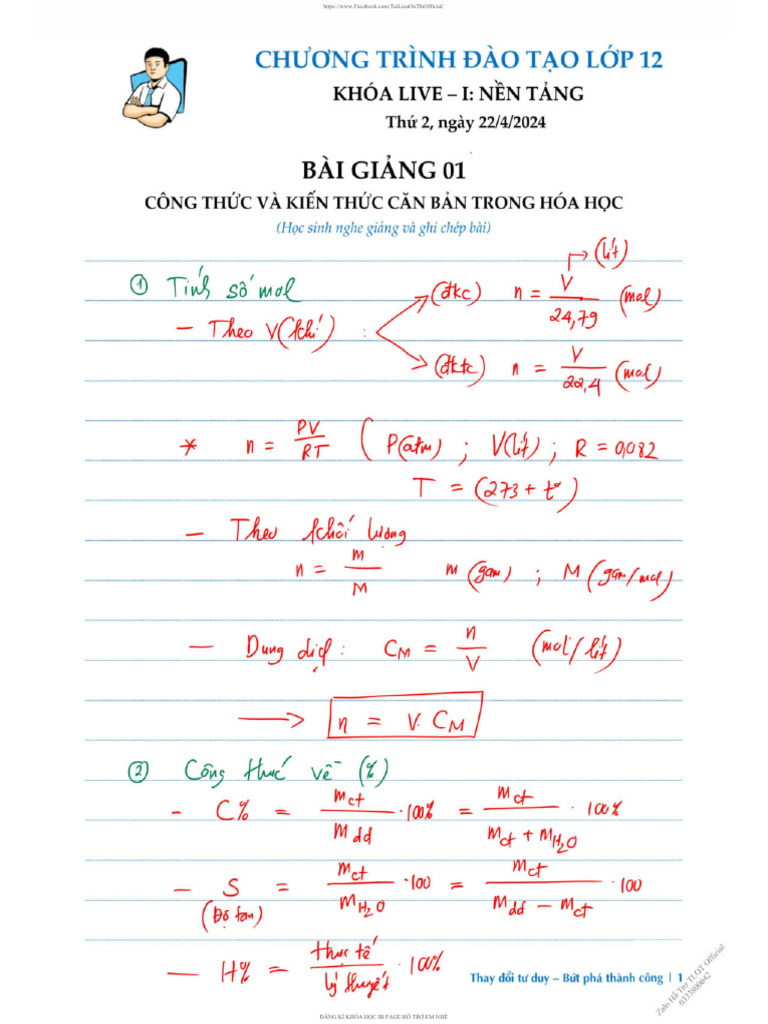 https://www.Facebook.com/TaiLieuOnThiOfficial/
CHƯƠNG TRÌNH ĐÀO TẠO LỚP 12
KHÓA LIVE – I: NỀN TẢNG
Thứ 2, ngày 22/4/2024
BÀI GIẢNG 01
CÔNG THỨC VÀ KIẾN THỨC CĂN BẢN TRONG HÓA HỌC
(Học sinh nghe giảng và ghi chép bài)
① Tính số mol
- Theo V(khí) :
(đkc) n = V/24,79 (mol)
(lít)
(đktc) n = V/22,4 (mol)
* n = PV/RT ( P(atm) ; V(lít) ; R = 0,082
T = (273 + t°)
- Theo khối lượng
n = m/M m (gam) ; M (gam/mol)
- Dung dịch : CM = n/V (mol/lít)
→ n = V. CM
② Công thức về (%)
- C% = mct/mdd . 100% = mct/(mct + mH2O) . 100%
- S = mct/mH2O . 100 = mct/(mdd - mct) . 100
(Độ tan)
- H% = Thực tế/lý thuyết . 100%
Thay đổi tư duy – Bứt phá thành công | 1
Zalo Hỗ Trợ TLOT Official
0333800642
ĐĂNG KÍ KHÓA HỌC IB PAGE HỖ TRỢ EM NHÉ